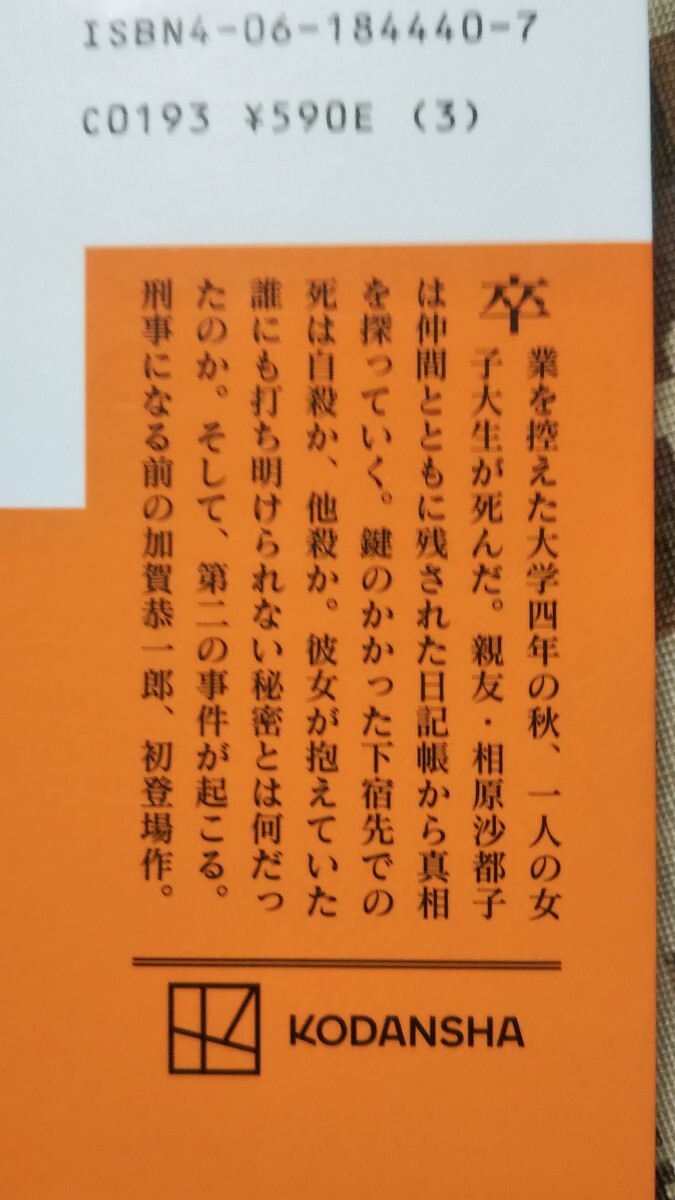 ISBN4-06-184440-7
C0193 ¥590E (3)
卒業を控えた大学四年の秋、一人の女
子大生が死んだ。親友・相原沙都子
は仲間とともに残された日記帳から真相
を探っていく。鍵のかかった下宿先での
死は自殺か、他殺か。彼女が抱えていた
誰にも打ち明けられない秘密とは何だっ
たのか。そして、第二の事件が起こる。
刑事になる前の加賀恭一郎、初登場作。
KODANSHA